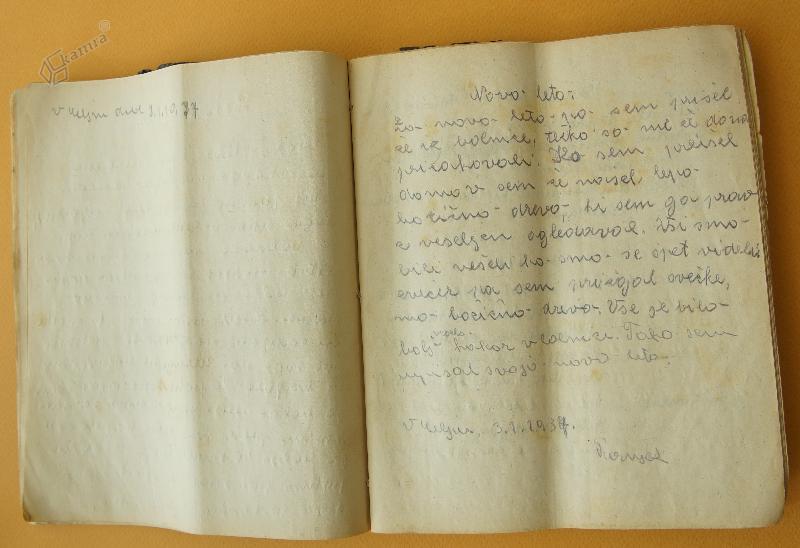 kamra
V Celju dne 3.1.1937
Novo leto.
Za novo leto pa sem prišel
že iz bolnice, težko so me že doma
pričakovali. Ko sem prišel
domov sem že našel lepo
božično drevo ki sem ga prav
z veseljem ogledaval. Vsi smo
bili veseli ko smo se spet videli
zvečer pa sem prižgal svečke,
na božično drevo. Vse je bilo
bolj veselo kakor v bolnici. Tako sem
svojo novo leto.
V Celju, 3.1.1937.